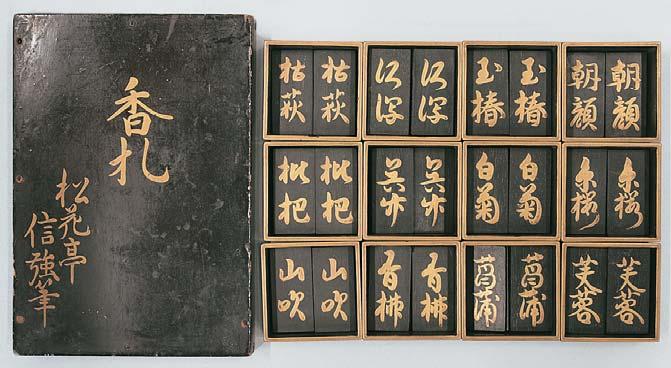 香札
松花亭
信強筆
朝顔
朝顔
玉椿
玉椿
枯萩
枯萩
糸桜
糸桜
白菊
白菊
呉竹
呉竹
枇杷
枇杷
芙蓉
芙蓉
菖蒲
菖蒲
山吹
山吹